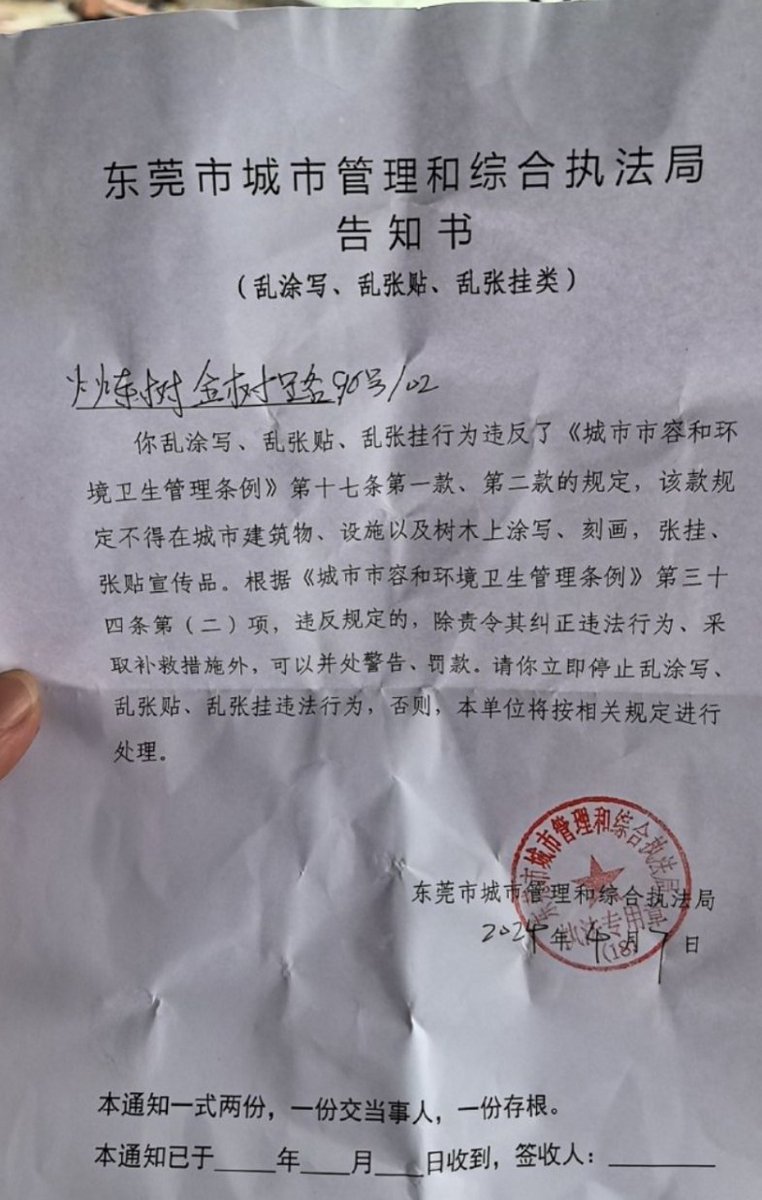 东莞市城市管理和综合执法局
告知书
（乱涂写、乱张贴、乱张挂类）
炼树 金树路96号/02
你乱涂写、乱张贴、乱张挂行为违反了《城市市容和环
境卫生管理条例》第十七条第一款、第二款的规定，该款规
定不得在城市建筑物、设施以及树木上涂写、刻画，张挂、
张贴宣传品。根据《城市市容和环境卫生管理条例》第三十
四条第（二）项，违反规定的，除责令其纠正违法行为、采
取补救措施外，可以并处警告、罚款。请你立即停止乱涂写、
乱张贴、乱张挂违法行为，否则，本单位将按相关规定进行
处理。
东莞市城市管理和综合执法局
执法专用章
(18)
东莞市城市管理和综合执法局
2024年4月7日
本通知一式两份，一份交当事人，一份存根。
本通知已于____年____月____日收到，签收人：________